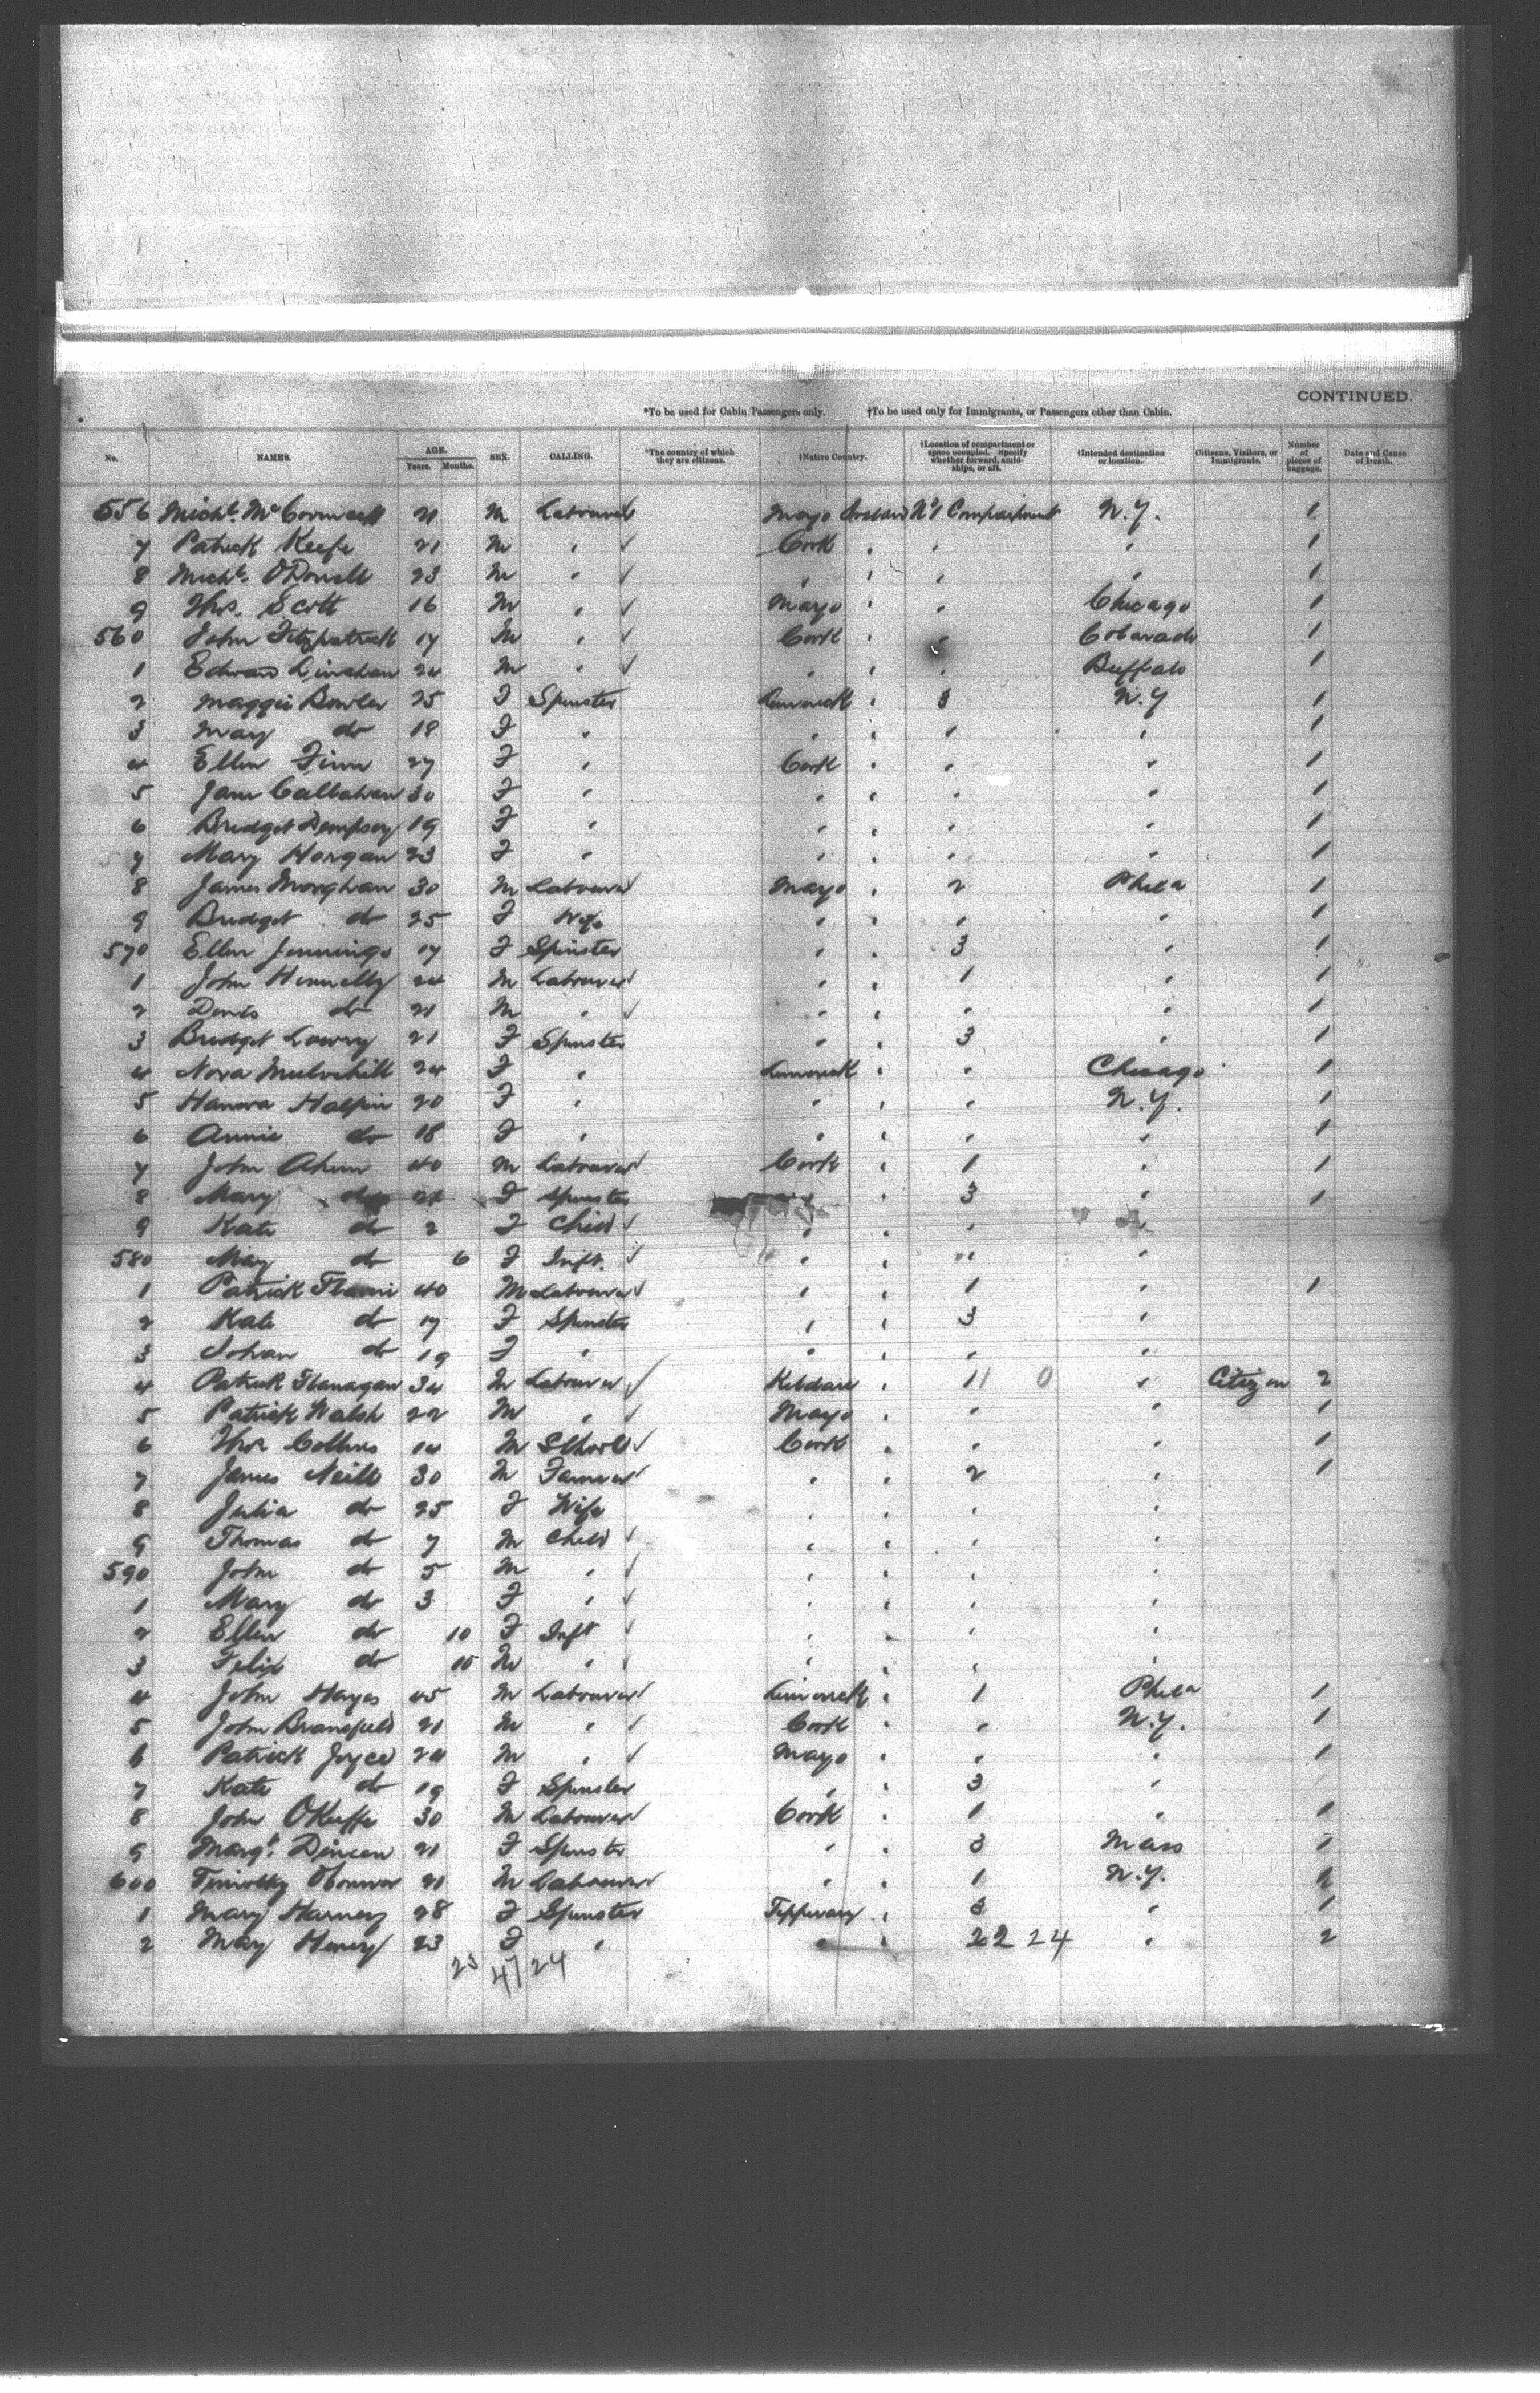 CONTINUED.
*To be used for Cabin Passengers only. †To be used only for Immigrants, or Passengers other than Cabin.
No. NAMES. AGE. Years. Months. SEX. CALLING. *The country of which they are citizens. †Native Country. †Location of compartment or space occupied. Specify whether forward, amidships, or aft. †Intended destination or location. Citizens, Visitors, or Immigrants. Number of pieces of baggage. Date and Cause of Death.
556 Micht. McCormack 21 M Labourer Mayo Ireland No 1 Compartment N.Y. 1
7 Patrick Keefe 21 M " Cork " " " 1
8 Michl. O'Donell 23 M " " " " " 1
9 Thos. Scott 16 M " Mayo " " Chicago 1
560 John Fitzpatrick 17 M " Cork " " Colorado 1
1 Edward Linehan 24 M " " " " Buffalo 1
2 Maggie Bowler 25 F Spinster Limerick " 3 N.Y 1
3 Mary do 18 F " " " " " 1
4 Ellen Finn 27 F " Cork " " " 1
5 Jane Callahan 30 F " " " " " 1
6 Bridget Dempsey 19 F " " " " " 1
7 Mary Horgan 23 F " " " " " 1
8 James Moughan 30 M Labourer Mayo " 2 Phila 1
9 Bridget do 25 F Wife " " " " 1
570 Ellen Jennings 17 F Spinster " " 3 " 1
1 John Hennelly 24 M Labourer " " 1 " 1
2 Denis do 21 M " " " " " 1
3 Bridget Lowry 21 F Spinster " " 3 " 1
4 Nora Mulvihill 24 F " Limerick " " Chicago 1
5 Hanora Halpin 20 F " " " " N.Y. 1
6 Annie do 18 F " " " " " 1
7 John Ahern 40 M Labourer Cork " 1 " 1
8 Mary do F Spinster " " 3 " 1
9 Kate do 2 F Child " " " "
580 May do 6 F Inft. " " " "
1 Patrick 40 M Labourer " " 1 " 1
2 Kate do 17 F Spinster " " 3 "
3 Johan do 19 F " " " " "
4 Patrick Flanagan 34 M Labourer Kildare " 11 0 " Citizen 2
5 Patrick Walsh 22 M " Mayo " " " 1
6 Thos Collins 14 M School Cork " " " 1
7 James Neill 30 M Farmer " " 2 " 1
8 Julia do 25 F Wife " " " "
9 Thomas do 7 M Child " " " "
590 John do 5 M " " " " "
1 Mary do 3 F " " " " "
2 Ellen do 10 F Inft " " " "
3 Felix do 10 M " " " " "
4 John Hayes 45 M Labourer Limerick " 1 Phila 1
5 John Bransfield 21 M " Cork " " N.Y. 1
6 Patrick Joyce 24 M " Mayo " " " 1
7 Kate do 19 F Spinster " " 3 "
8 John O'Keeffe 30 M Labourer Cork " 1 " 1
9 Margt. Dineen 21 F Spinster " " 3 Mass 1
600 Timothy O'Connor 21 M Labourer " " 1 N.Y.
1 Mary Harney 28 F Spinster Tipperary " 3 " 1
2 May Heney 23 F " " " 22 24 " 2
23 47 24